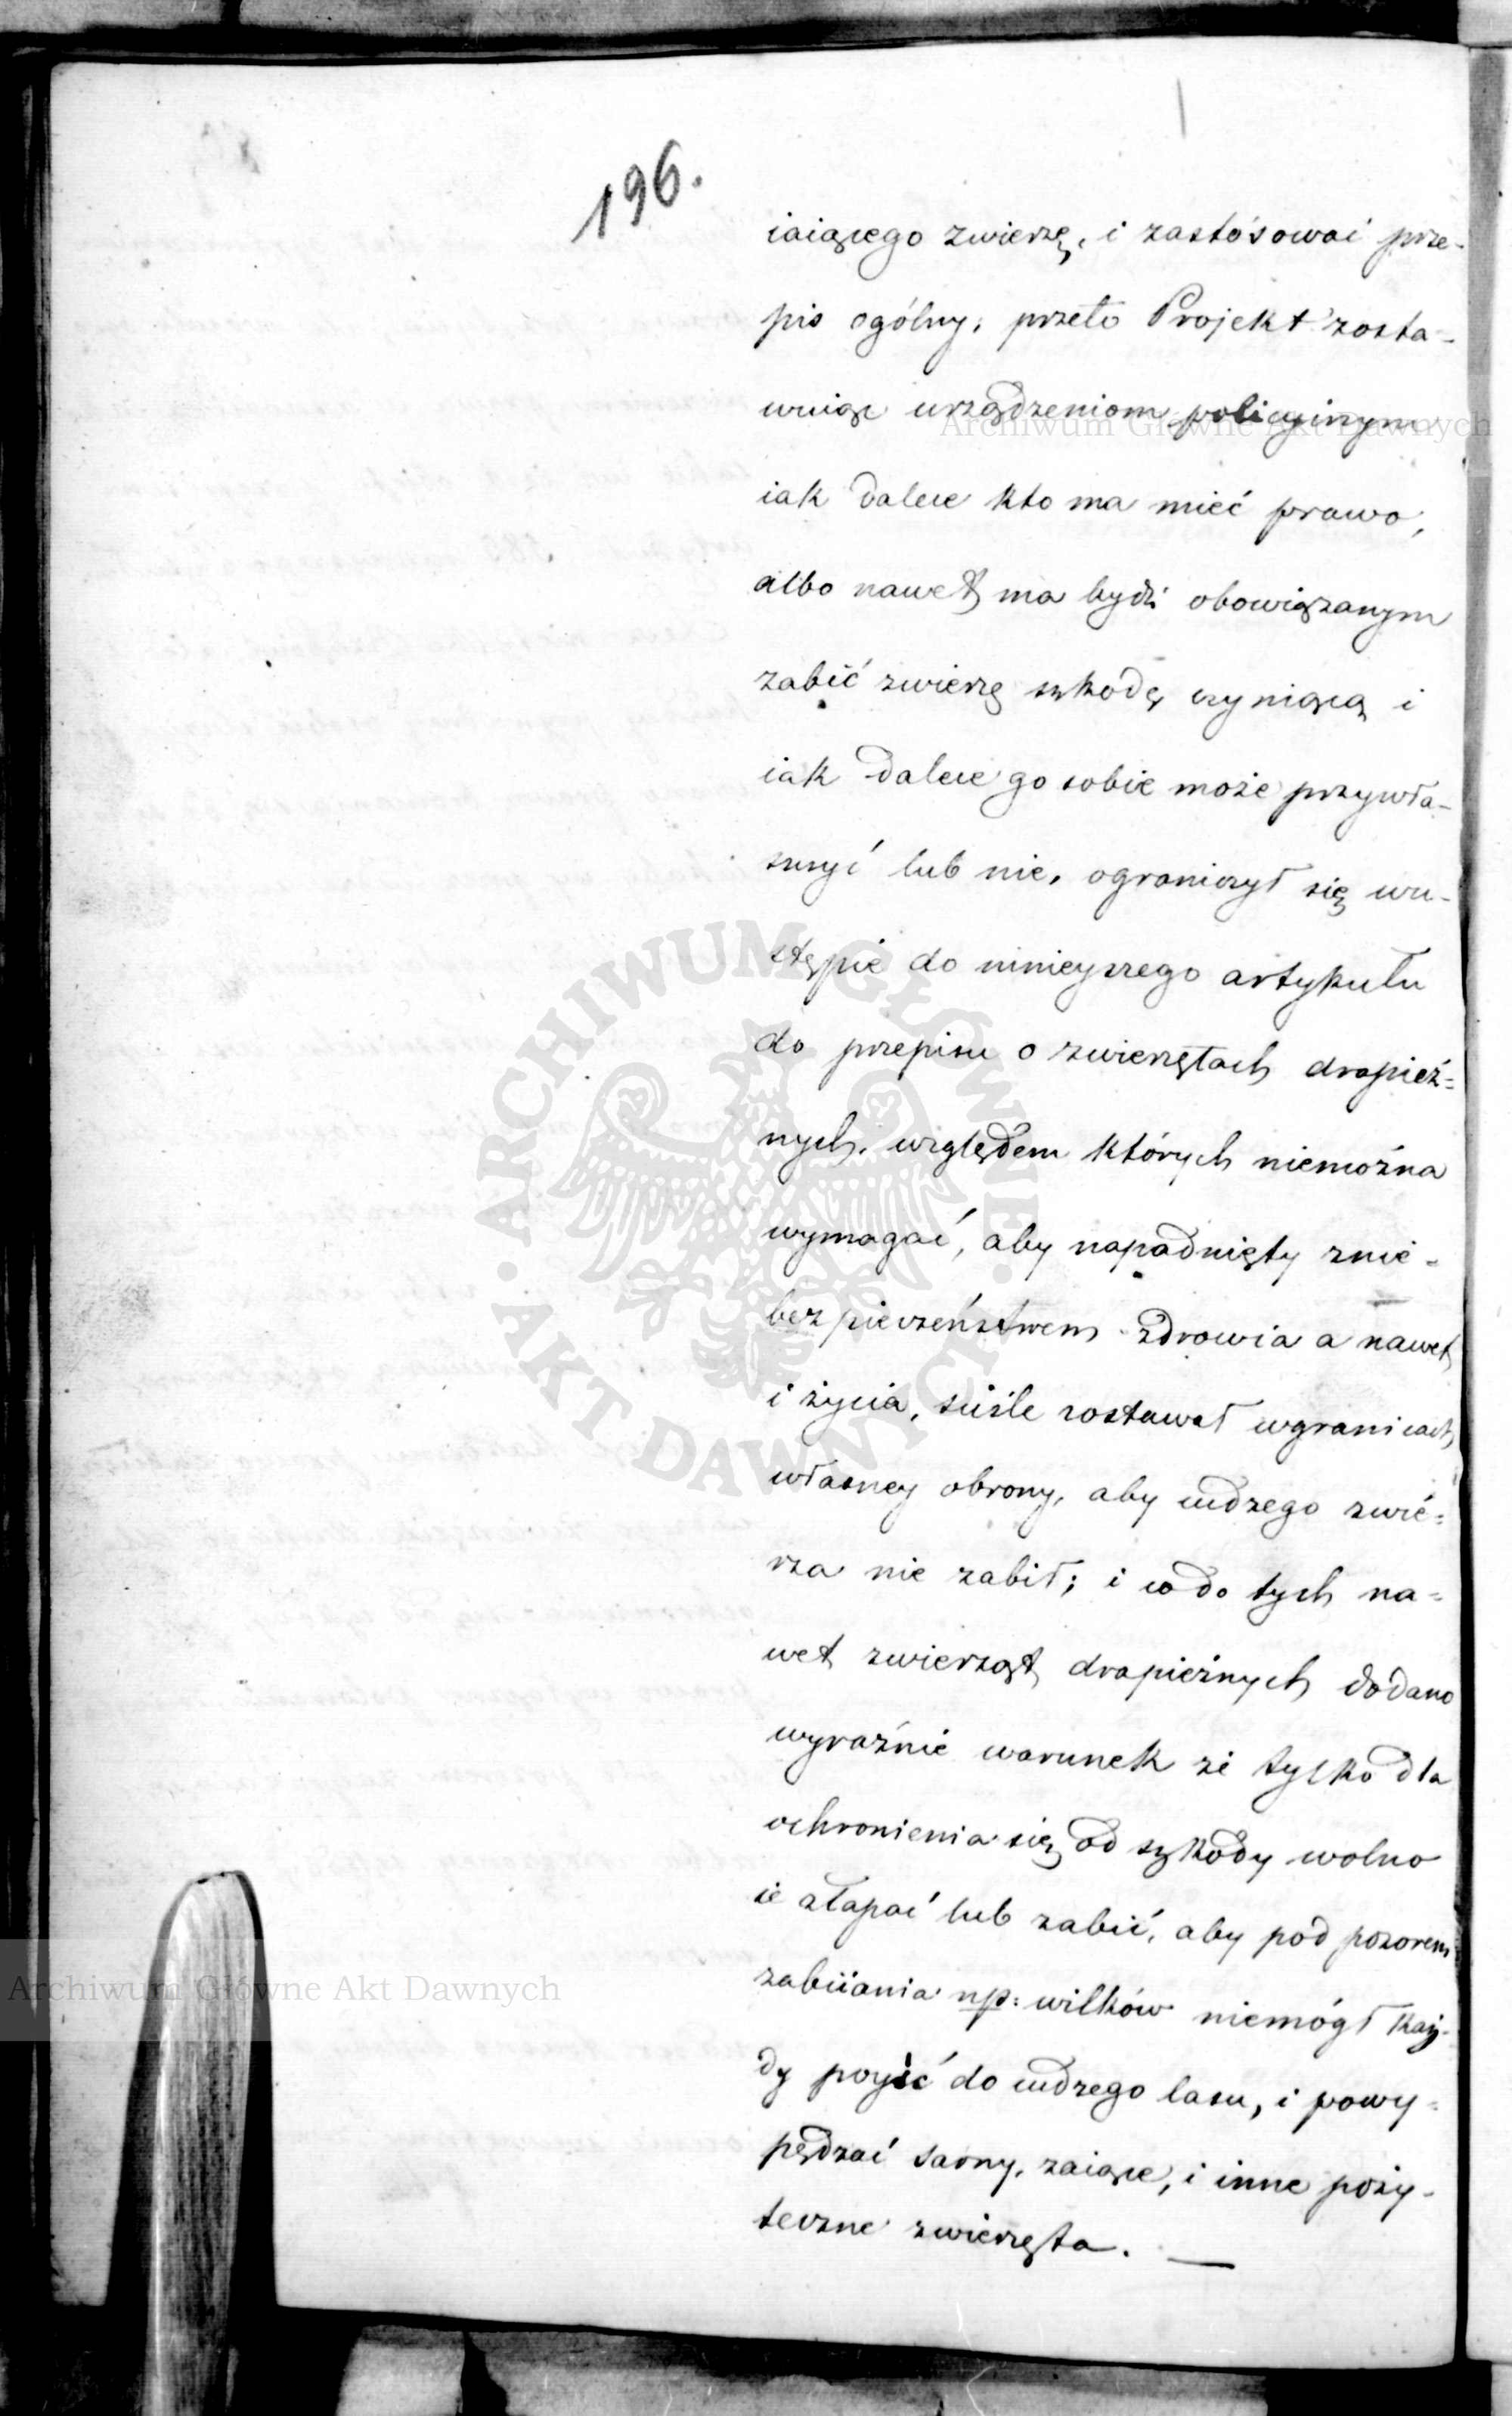 196.
iaiącego zwierzę, i zastósować prze-
pis ogólny; przeto Projekt zosta-
wuiąc urządzeniom policyinym
iak dalece kto ma mieć prawo,
albo nawet ma bydź obowiązanym
zabić zwierzę szkodę czyniącą i
iak dalece go sobie może przywła-
szczyć lub nie, ograniczył się wu-
stępie do ninieyszego artykułu
do przepisu o zwierzętach drapież=
nych, względem których niemożna
wymagać, aby napadnięty znie-
bezpieczeństwem zdrowia a nawet
i życia, ściśle zostawał wgranicach
własney obrony, aby cudzego zwie=
rza nie zabił; i co do tych na=
wet zwierząt drapieżnych dodano
wyraźnie warunek że tylko dla
ochronienia się od szkody wolno
ie złapać lub zabić, aby pod pozorem
zabiiania np: wilków niemógł każ-
dy poyść do cudzego lasu, i powy=
pędzać sarny, zaiące, i inne poży-
teczne zwierzęta. —
Archiwum Główne Akt Dawnych
ARCHIWUM GŁÓWNE • AKT DAWNYCH •
Archiwum Główne Akt Dawnych